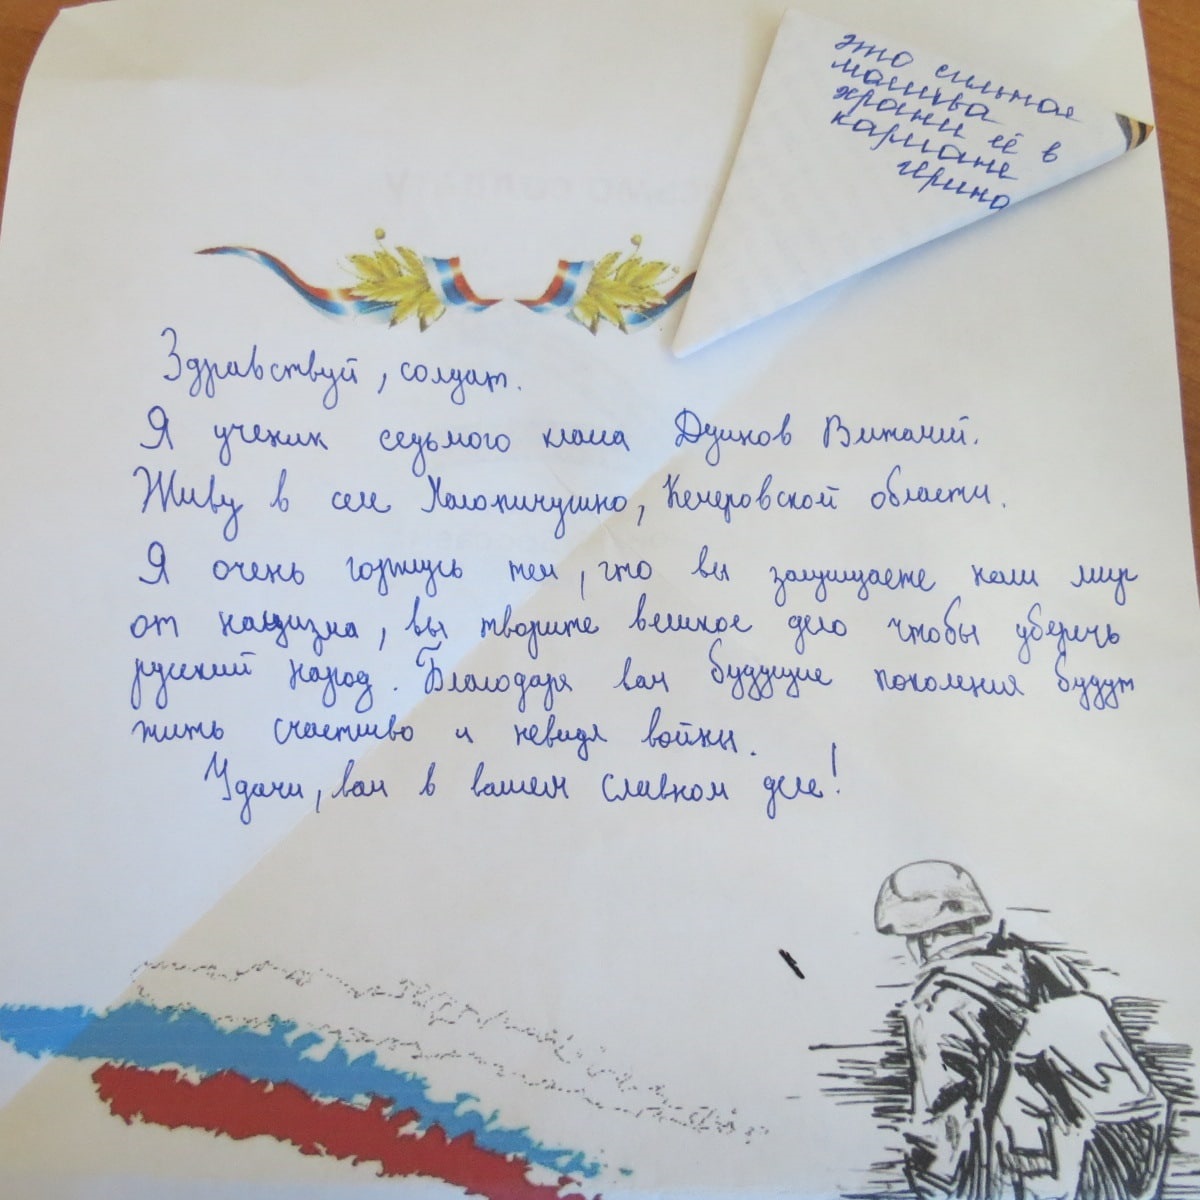 это сильная
малитва
храни её в
кармане
герино
Здравствуй, солдат.
Я ученик седьмого класса Виталий.
Живу в селе Малопичугино, Кемеровской области.
Я очень горжусь тем, что вы защищаете наш мир
от нацизма, вы творите великое дело чтобы уберечь
русский народ. Благодаря вам будущие поколения будут
жить счастливо и невидя войны.
Удачи, вам в вашем славном деле!